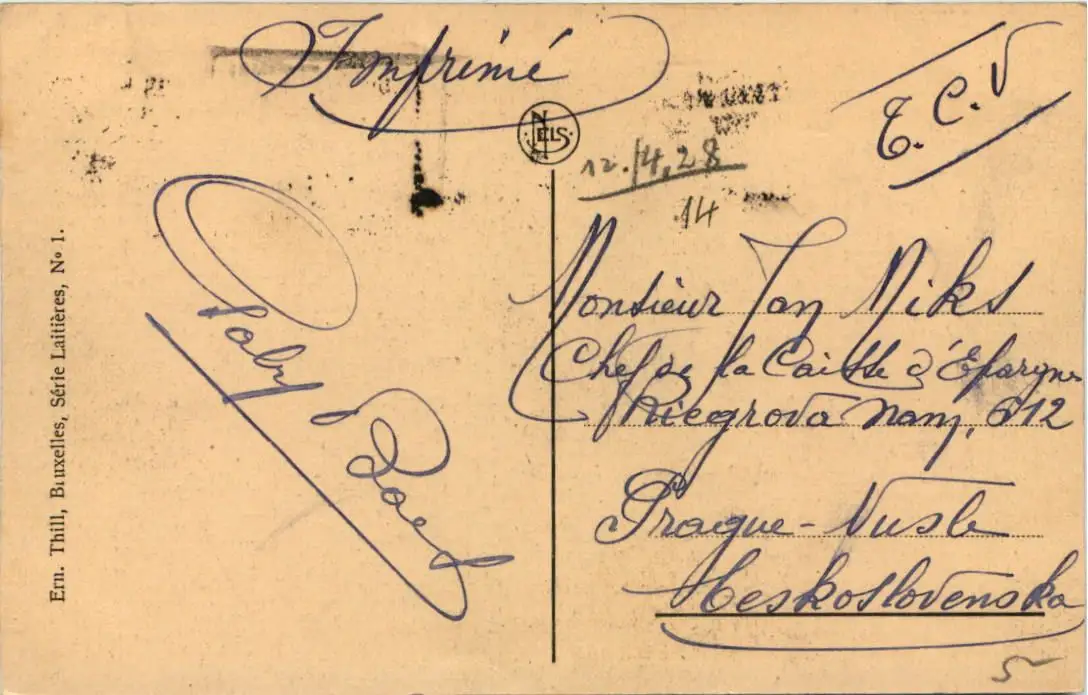 Imprimé
T.C.V
NELS
12./4.28
14
Ern. Thill, Bruxelles, Série Laitières, No 1.
Gaby
Monsieur Jan Niks
Chef de la Caisse d'Epargne
Riegrova Nam, 612
Prague - Nusle
Ceskoslovenska
5